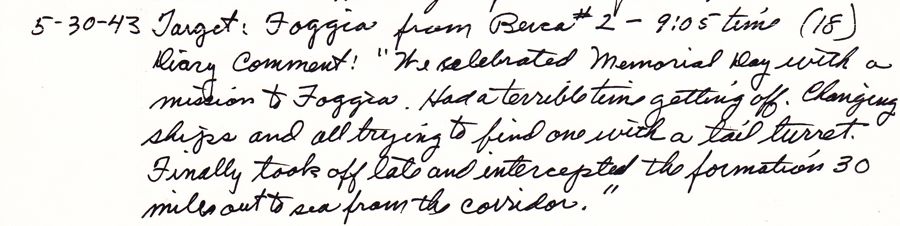 5-30-43 Target: Foggia from Berca #2 - 9:05 time (18)
Diary Comment! "We celebrated Memorial Day with a
mission to Foggia. Had a terrible time getting off. Changing
ships and all trying to find one with a tail turret.
Finally took off late and intercepted the formation 30
miles out to sea from the corridor."